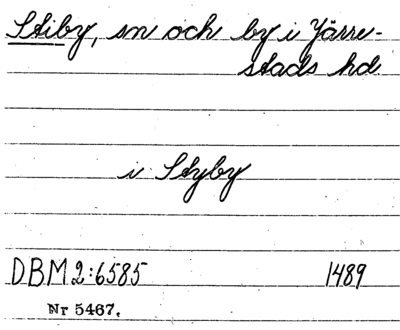 Stiby, sn och by i Järre-
stads hd.
i Styby
DBM 2:6585 1489
Nr 5467.